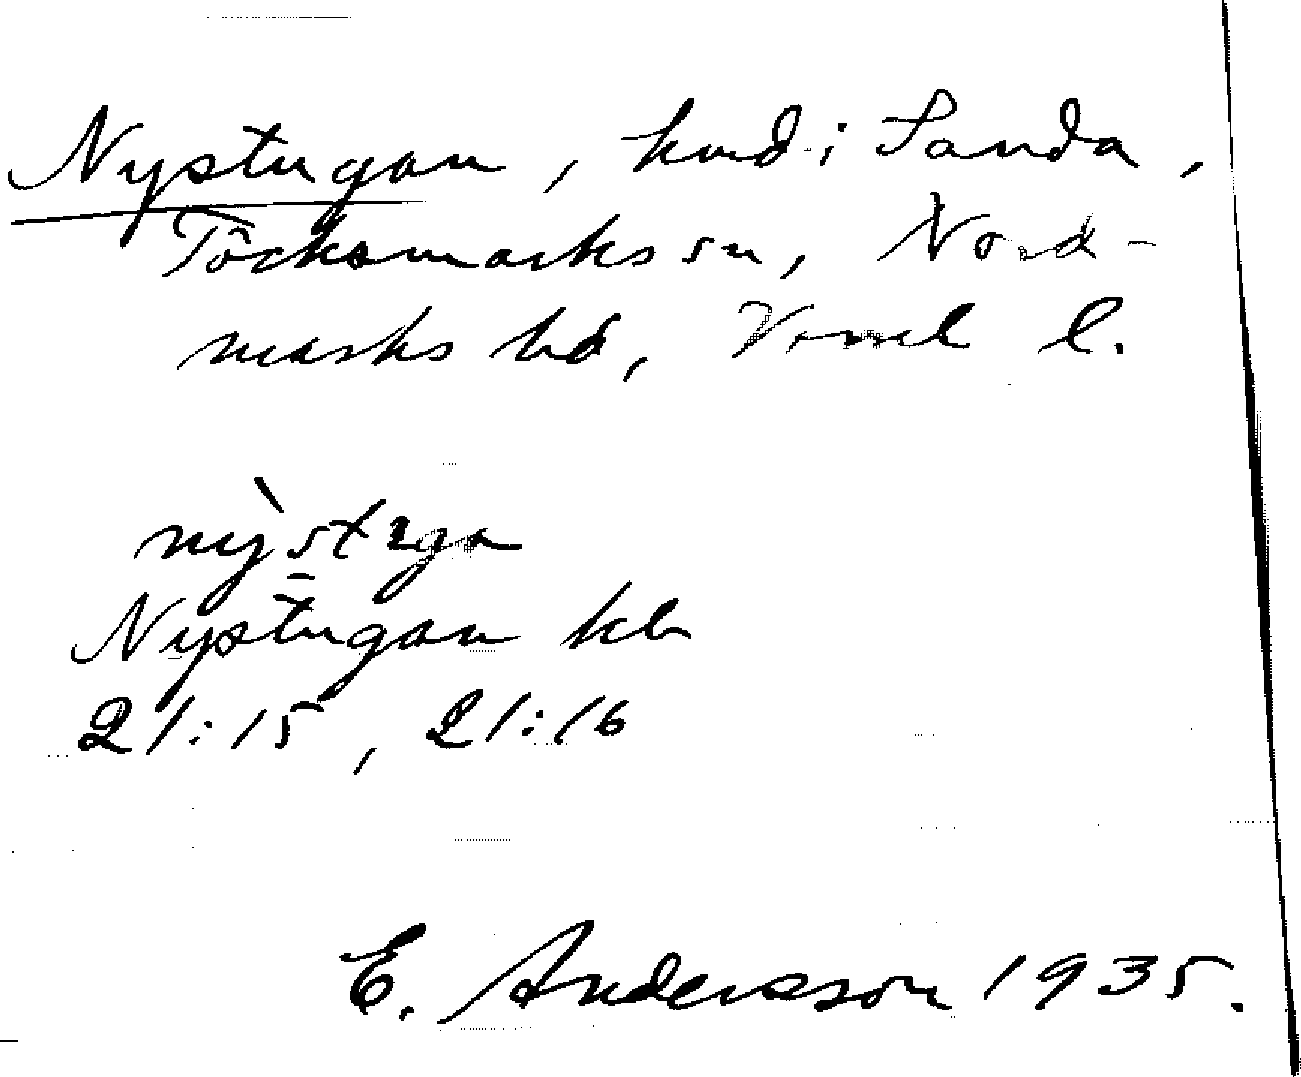 Nystugan, hmd i Sanda,
Töcksmarks sn, Nord-
marks hd, Värml l.
Nystugan kb
21:15, 21:16
E. Andersson 1935.